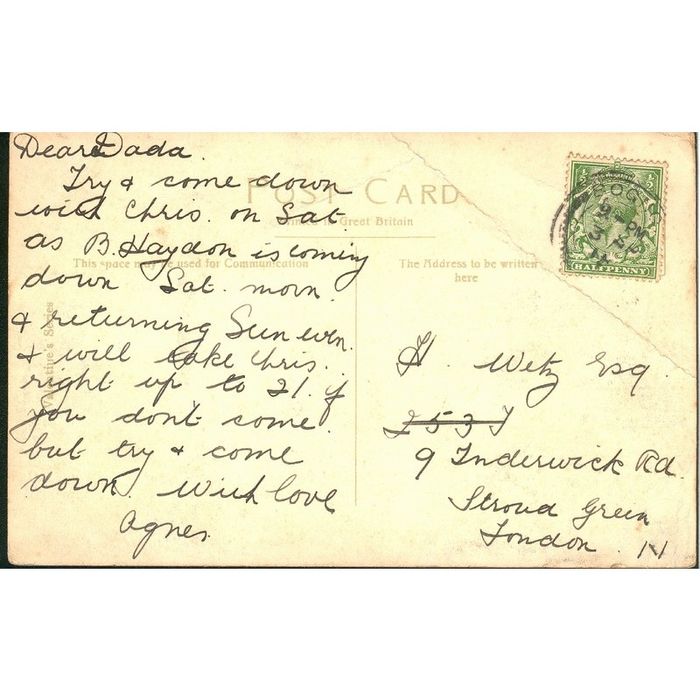 Dear Dada.
Try & come down
with Chris. on Sat.
as B. Haydon is coming
down Sat. morn.
& returning Sun even.
& will take Chris.
right up to 21. if
you don't come
but try & come
down. With love
Agnes.
POST CARD
Printed in Great Britain
This space may be used for Communication
The Address to be written
here
Valentine's Series
H. Wetz Esq.
253 J
9 Inderwick Rd.
Stroud Green
London. N
HALFPENNY